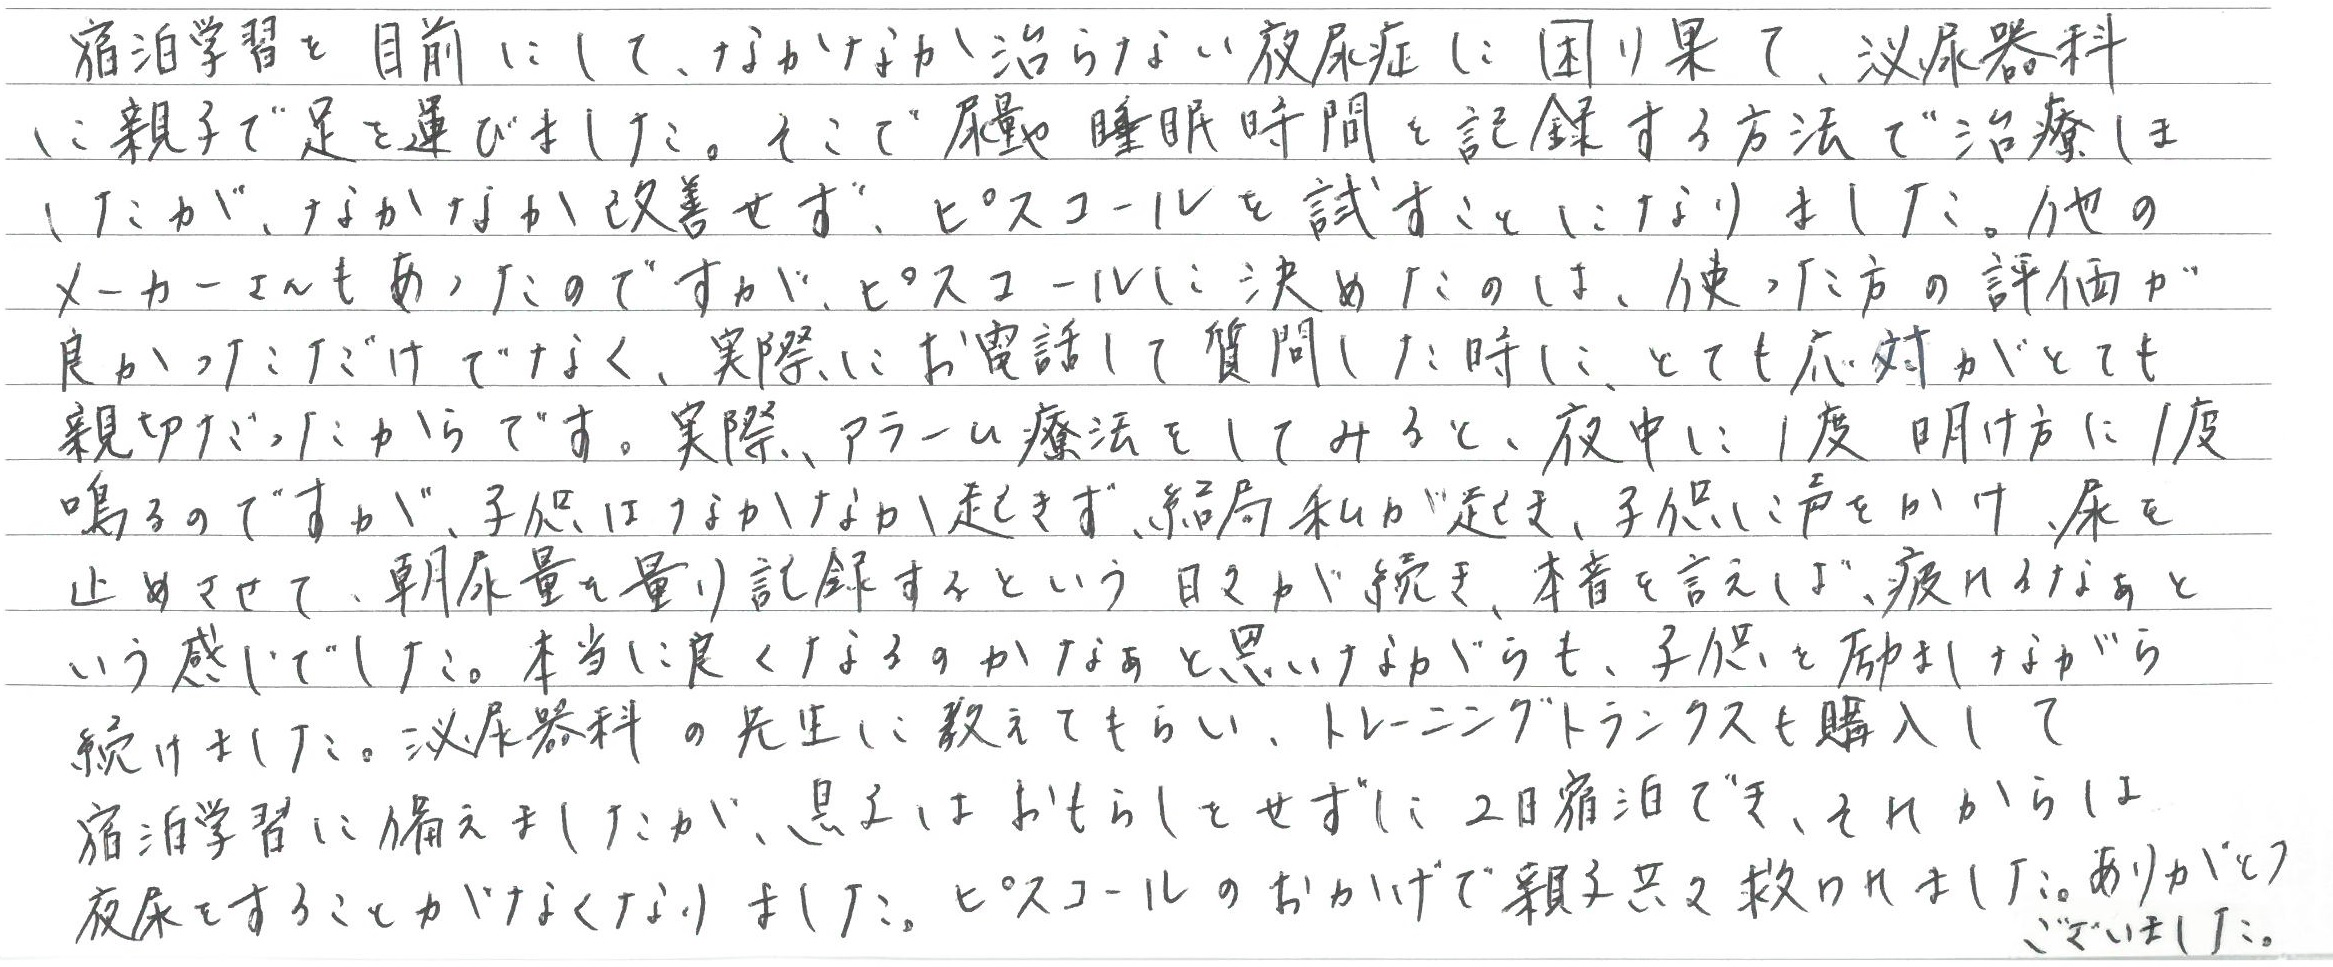 宿泊学習を目前にして、なかなか治らない夜尿症に困り果て、泌尿器科
に親子で足を運びました。そこで尿量や睡眠時間を記録する方法で治療しま
したが、なかなか改善せず、ピスコールを試すことになりました。他の
メーカーさんもあったのですが、ピスコールに決めたのは、使った方の評価が
良かっただけでなく、実際にお電話して質問した時に、とても応対がとても
親切だったからです。実際、アラーム療法をしてみると、夜中に1度 明け方に1度
鳴るのですが、子供はなかなか起きず、結局私が起き、子供に声をかけ、尿を
止めさせて、朝尿量を量り記録するという日々が続き、本音を言えば、疲れるなぁと
いう感じでした。本当に良くなるのかなぁと思いながらも、子供を励ましながら
続けました。泌尿器科の先生に教えてもらい、トレーニングトランクスも購入して
宿泊学習に備えましたが、息子はおもらしをせずに2日宿泊でき、それからは
夜尿をすることがなくなりました。ピスコールのおかげで親子共々救われました。ありがとう
ございました。